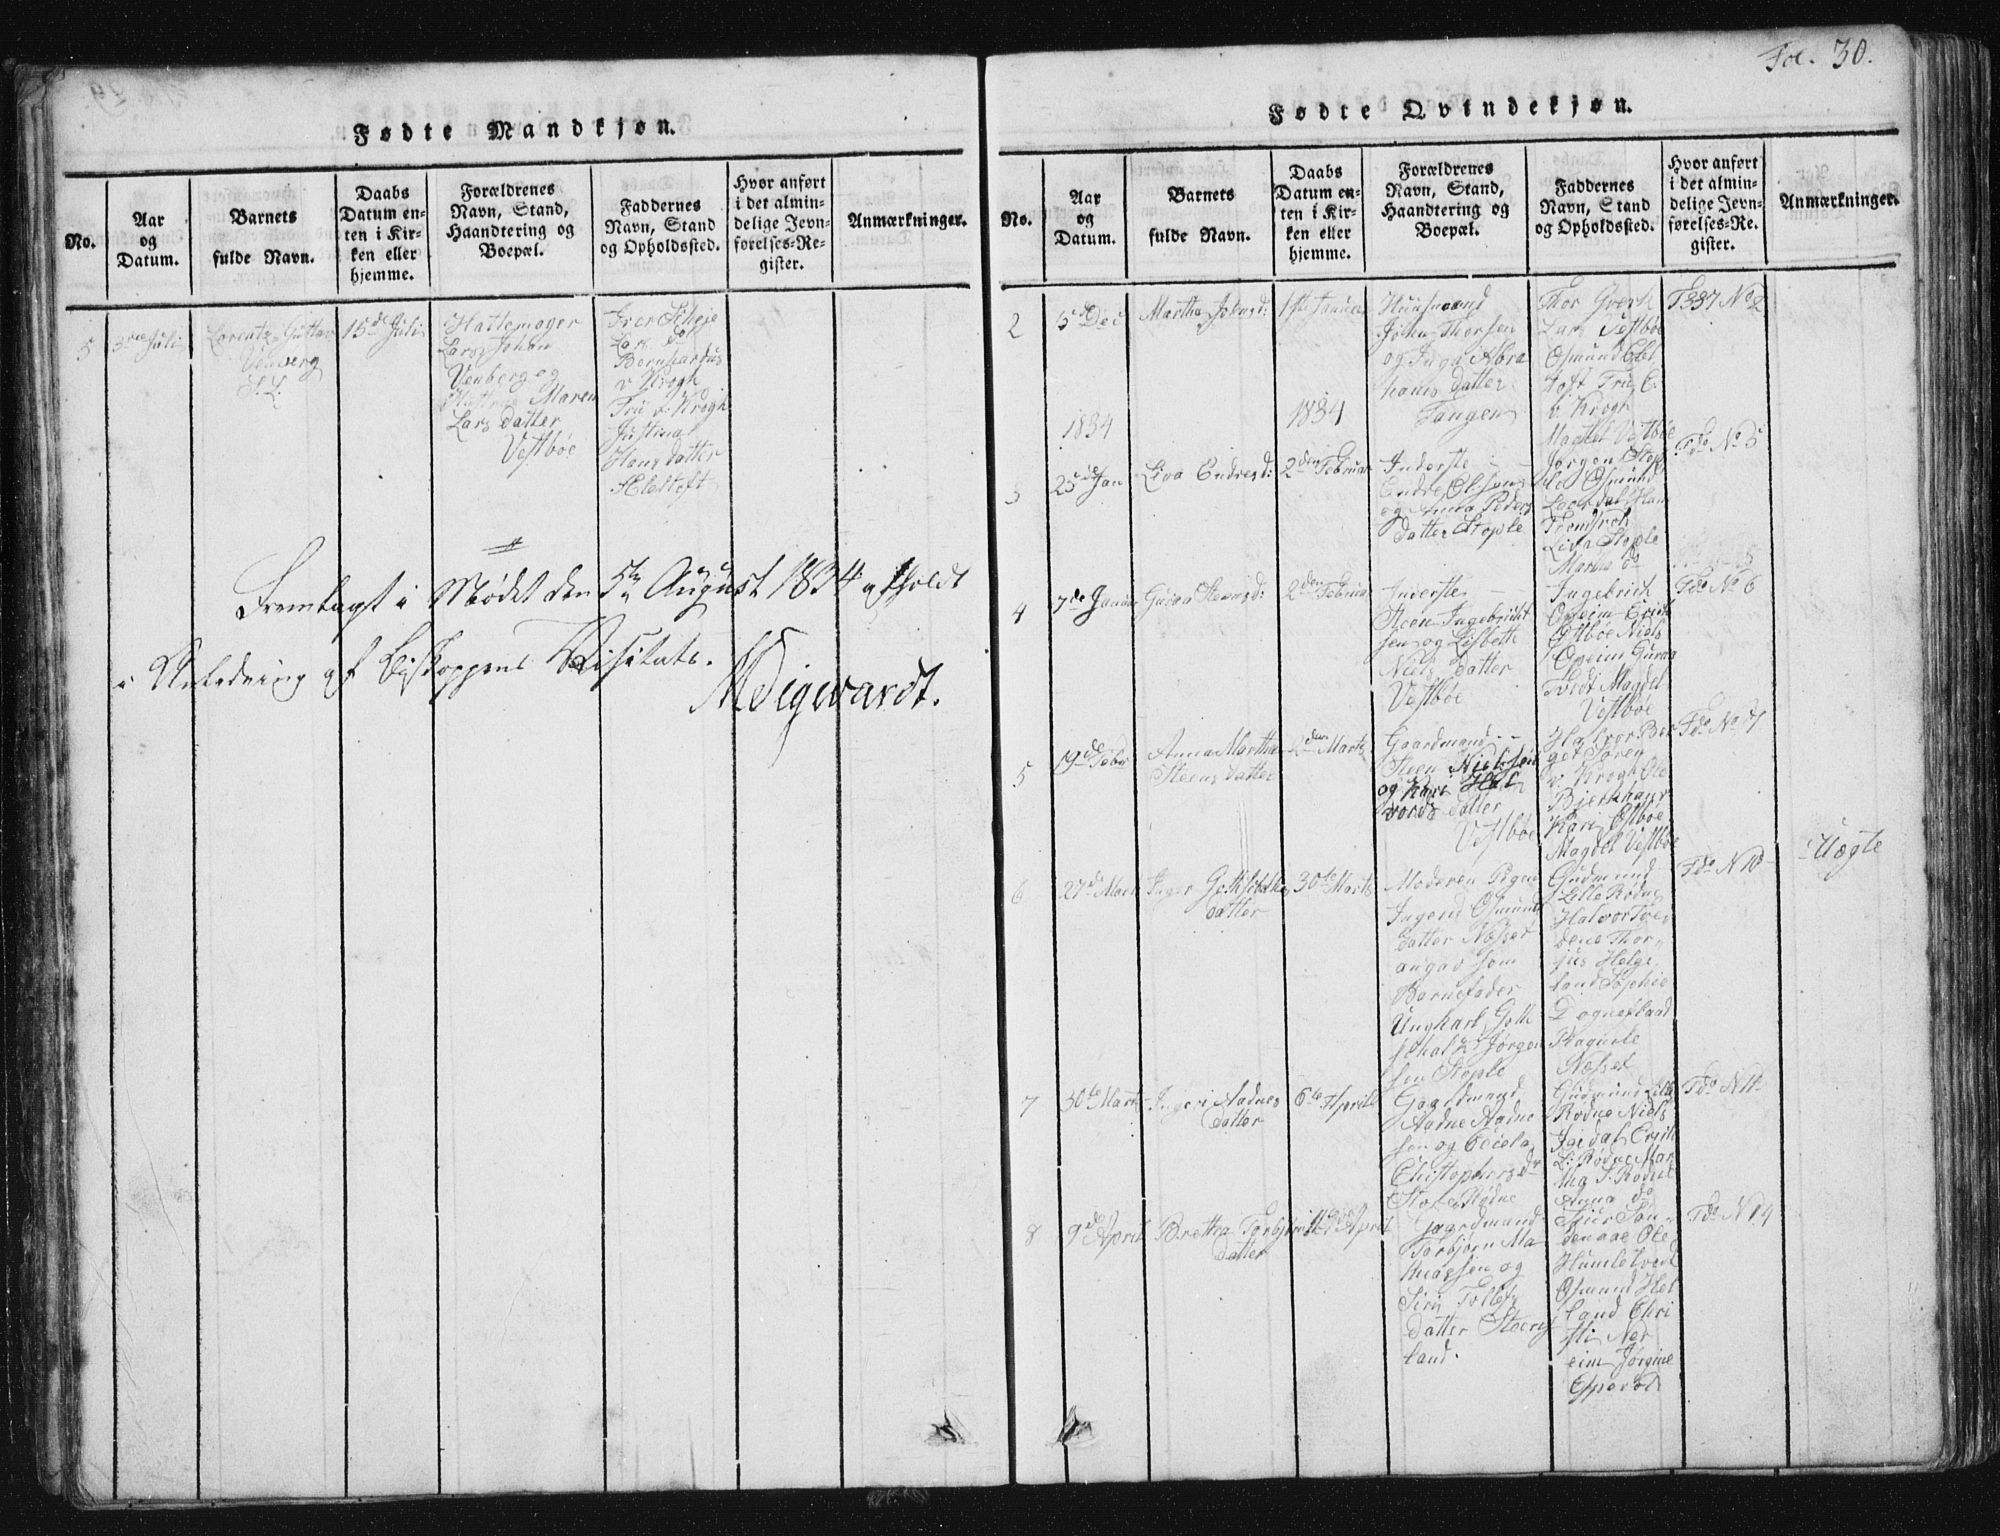 Fol. 30.
Fødte Mandkjøn.
No.
Aar
og
Datum.
Barnets
fulde Navn.
Daabs
Datum en-
ten i Kir-
ken eller
hjemme.
Forældrenes
Navn, Stand,
Haandtering og
Boepæl.
Faddernes
Navn, Stand
og Opholdssted.
Hvor anført
i det almin-
delige Jevn-
førelses-Re-
gister.
Anmærkninger.
5
3die Juli
Lorentz Gustav
Venberg
15de Juli
Hattemager
Lars Johan
Venberg og
Hustrue Maren
Lars datter
Vestbøe
Lars do
Bernhardus
v Krogh
Fru v. Krogh
Justina
Hans datter
Fremlagt i Mødet den 5te August 1834 afholdt
i Anledning af Biskoppens Visitats.
Fødte Qvindekjøn.
No.
Aar
og
Datum.
Barnets
fulde Navn.
Daabs
Datum en-
ten i Kir-
ken eller
hjemme.
Forældrenes
Navn, Stand,
Haandtering og
Boepæl.
Faddernes
Navn, Stand
og Opholdssted.
Hvor anført
i det almin-
delige Jevn-
førelses-Re-
gister.
Anmærkninger.
2
5te Dec
Martha Johnsd:
1ste Januar
Huusmand
John Thorsen
og Inga Abra
hams datter
Tangen
Lars Vestbøe
Osmund
v. Krogh
Magdel Vestbøe
F 337 No 2
1834
1834
3
25de Jan
Liva Endresd:
2den Februar
Inderste
Endre Olsen
og Anna Peders
datter Stople
Jørgen Stop
le Osmund
Liva Stople
Martha do
F do No 5
4
7de Januar
Guroa Steensd:
2den Februar
Inderste
Steen Ingebricht
sen og Lisbeth
Niels datter
Vestbøe
Ingebrich
Opeim Erich
Østbøe Niels
Opeim Guroa
Tvedt Magdel
Vestbøe
F do No 6
5
19de Febr
Anna Martha
Steens datter
2den Marts
Gaardmand
Steen Nielssen
og Kari Hal
vords datter
Vestbøe
Halvor Bor
get Søren
v. Krogh Ole
Bjerkhaur
Kari Østbøe
Magdel Vestbøe
F do No 7
6
27de Mart
Inger Gothschalks
datter
30te Marts
Moderen Pigen
Ingeri Osmunds
datter Næsset
angav som
Barnefader
Ungkarl Goth
schalk Jørgen
sen Stople
Gudmund
Lille Rødne
Halvor Tve
dene Thor
jus Helge
land Sophie
Dognefland
Ragnele
Næsset
F do N 10
Uægte
7
30te Marts
Ingeri Aadnes
datter
6te April
Gaardmand
Aadne Aadne
sen og Cecela
Christophersdr
Store Rødne
Gudmund Lille
Rødne Niels
Jaidal Erich
L. Rødne Mar
tha S. Rødne
Anna do
F do N 12
8
9de April
Bretha Torbjørns
datter
April
Gaardmand
Torbjørn Ma
thiassen og
Siri Tollefs
datter Stoere
land.
Siur Søn
denaae Ole
Humletvedt
Osmund Hel
land Chri
sti Ner
eim Jørgine
F do N 14